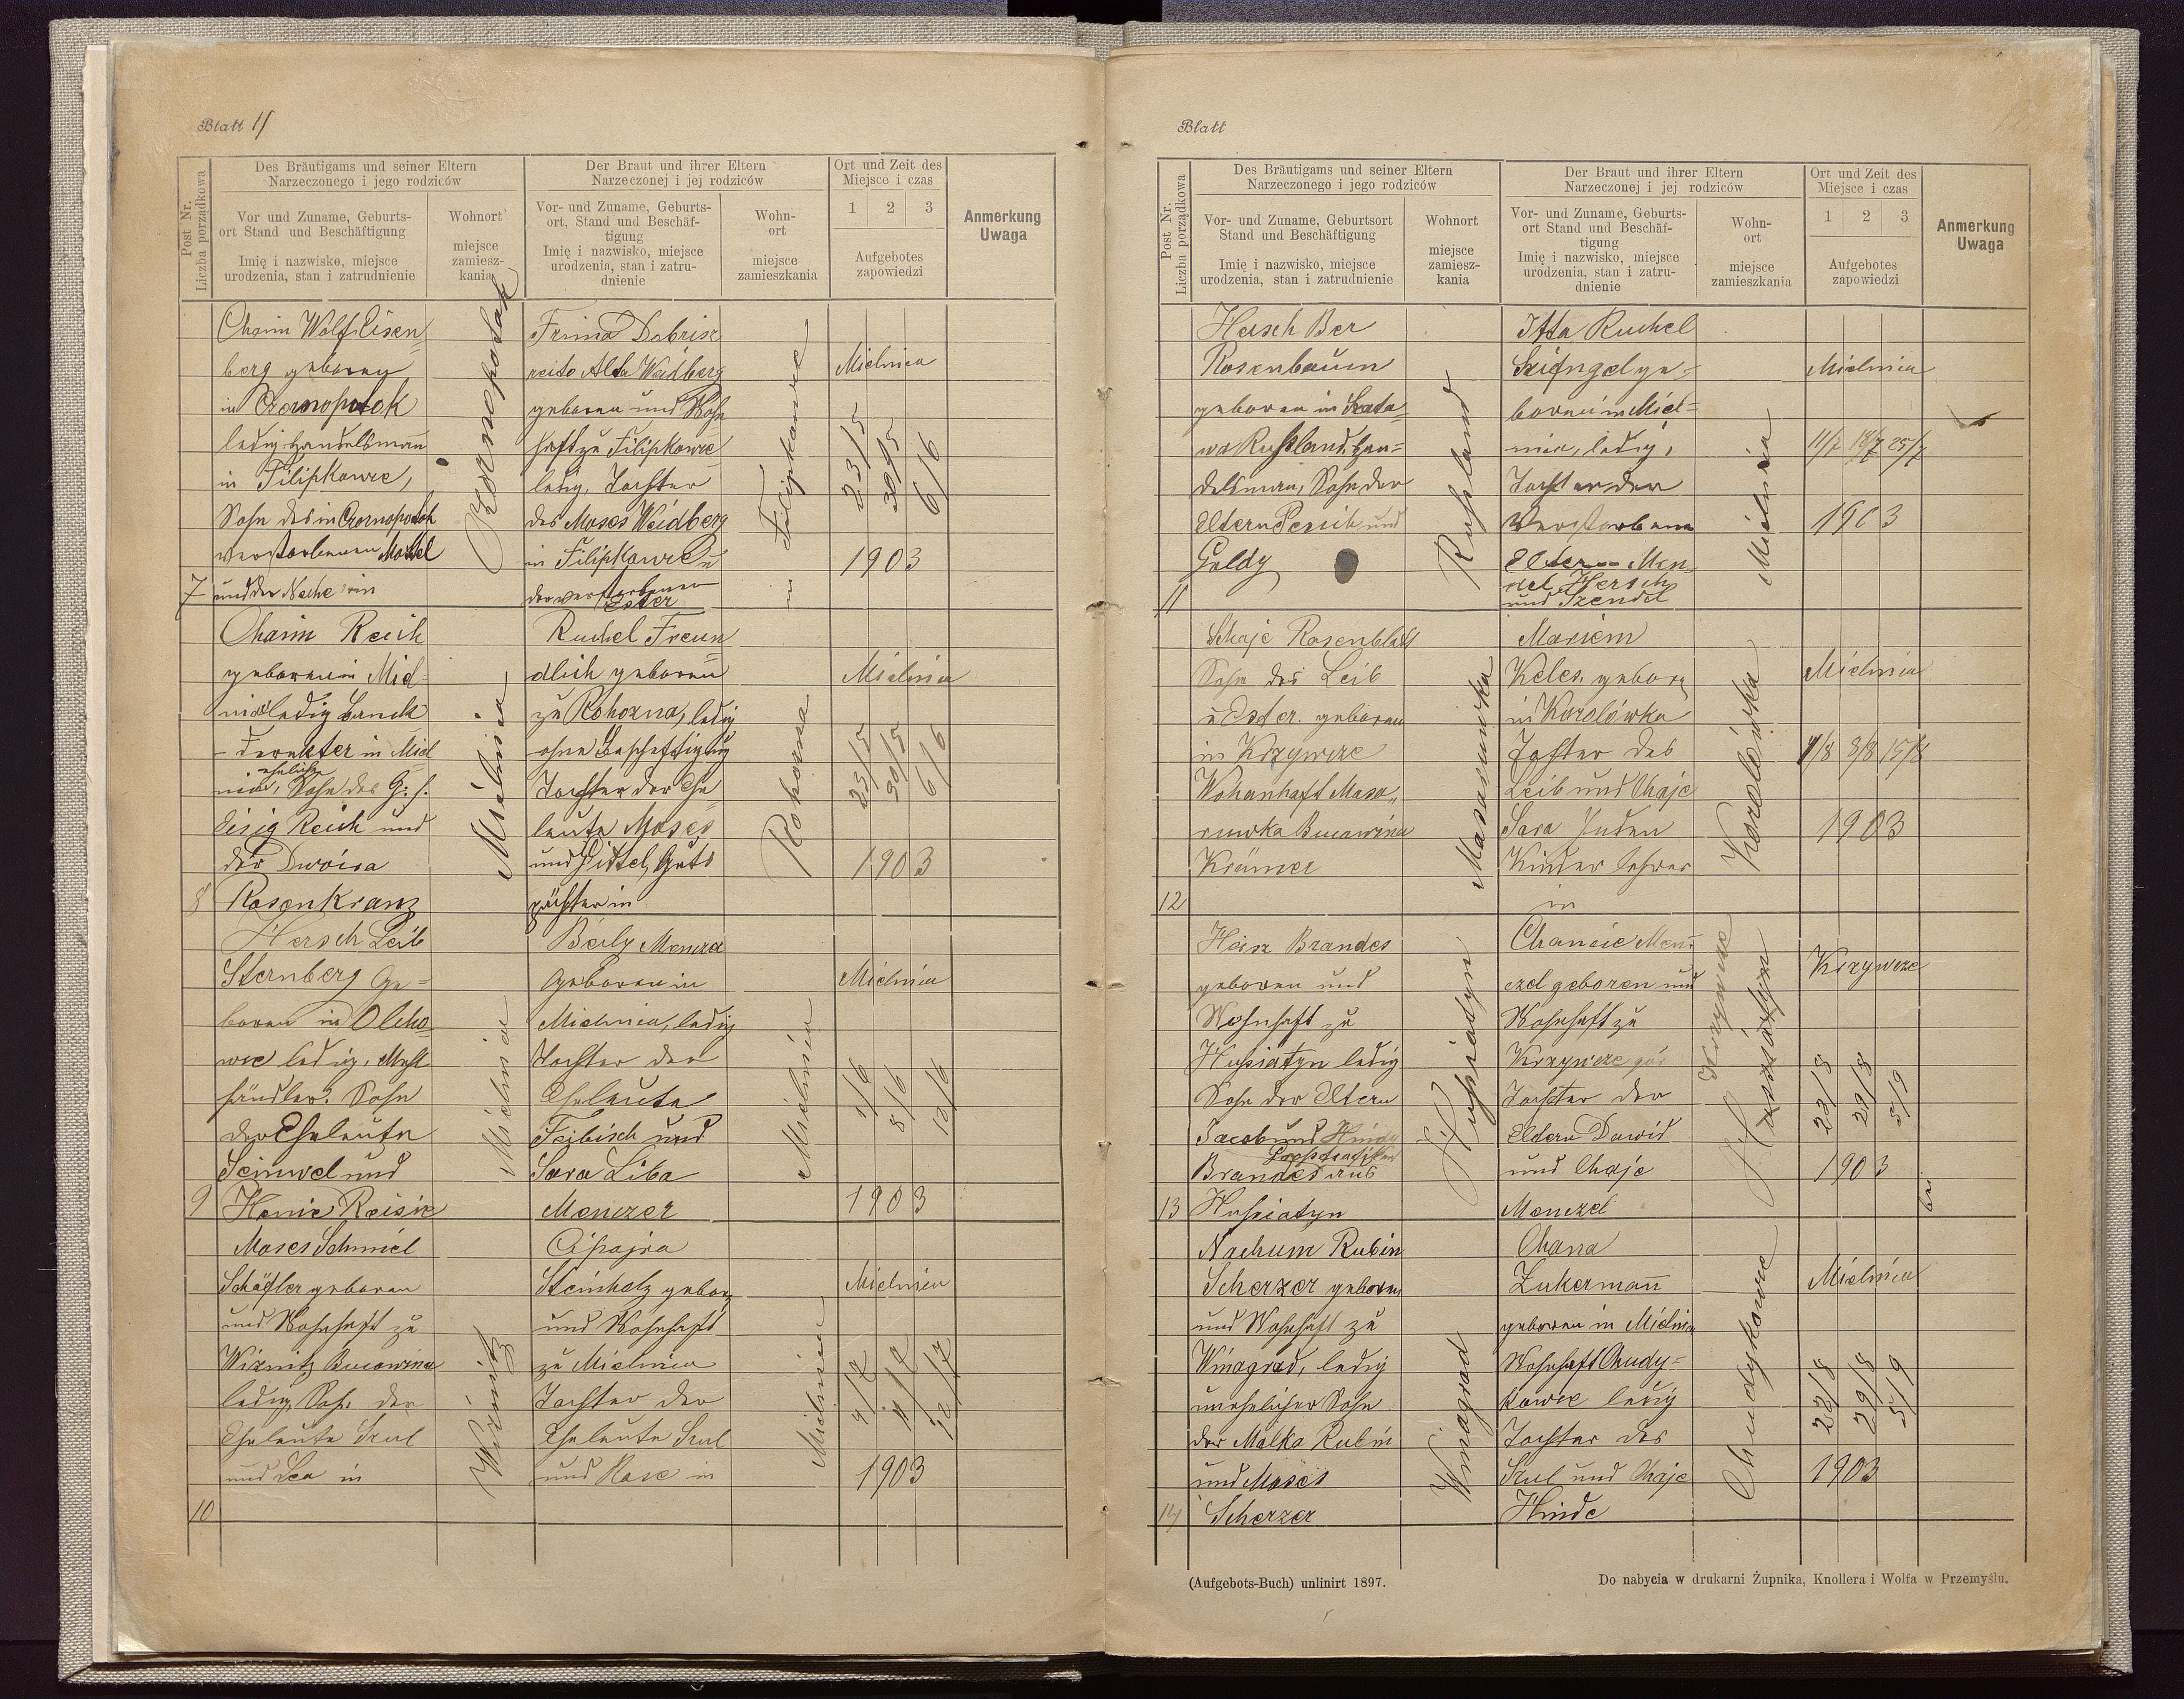 Blatt 11
Des Bräutigams und seiner Eltern
Narzeczonego i jego rodziców
Der Braut und ihrer Eltern
Narzeczonej i jej rodziców
Ort und Zeit des
Miejsce i czas
Post Nr.
Liczba porządkowa
Vor und Zuname, Geburts-
ort Stand und Beschäftigung
Imię i nazwisko, miejsce
urodzenia, stan i zatrudnienie
Wohnort
miejsce
zamiesz-
kania
Vor- und Zuname, Geburts-
ort, Stand und Beschäf-
tigung
Imię i nazwisko, miejsce
urodzenia, stan i zatru-
dnienie
Wohn-
ort
miejsce
zamieszkania
1 2 3
Aufgebotes
zapowiedzi
Anmerkung
Uwaga
7
Chaim Wolf Eisen=
berg geboren
in Czornopotok
ledig Handelsmann
in Filipkowce,
Sohn des in Czornopotok
verstorbenen
und der Neche in
Czornopotok
Frima Dobrisz
Alta Weidberg
geboren und Wohn
haft zu Filipkowce
ledig, Tochter
des Moses Weidberg
in Filipkowce u
der verstorbenen
Ester
Filipkowce
Mielnica
23/15 30/15 6/16
1903
8
Chaim Reich
geboren in Miel=
nica ledig
in Miel
nica, eheliche Sohn des G. f.
Eisig Reich und
der Dwoira
Rosenkranz
Mielnica
Ruchel Freun
dlich geboren
zu Rohozna, ledig
ohne Beschäftigung
Tochter der Ehe
leute Moses
und Gittel Guts
pächter in
Rohozna
Mielnica
23/15 30/15 6/6
1903
9
Hersch Leib
Sternberg Ge=
boren in Olcho
wce ledig, Mehl
händler. Sohn
der Eheleute
Seinwel und
Henie Reisie
Mielnica
Beily Menczer
geboren in
Mielnica, ledig
Tochter der
Eheleute
Feibisch und
Sara Liba
Menczer
Mielnica
Mielnica
1/6 8/6 12/6
1903
10
Moses Schmiel
Schäfler geboren
und Wohnhaft zu
Wiznitz Bucowina
ledig, Soh. der
Eheleute Srul
und Lea in
Wiznitz
Cipojra
Steinholz geboren
und Wohnhaft
zu Mielnica
Tochter der
Eheleute Srul
und Rose in
Mielnica
Mielnica
4/7 11/7 12/7
1903
Blatt
Des Bräutigams und seiner Eltern
Narzeczonego i jego rodziców
Der Braut und ihrer Eltern
Narzeczonej i jej rodziców
Ort und Zeit des
Miejsce i czas
Post Nr.
Liczba porządkowa
Vor und Zuname, Geburtsort
Stand und Beschäftigung
Imię i nazwisko, miejsce
urodzenia, stan i zatrudnienie
Wohnort
miejsce
zamiesz-
kania
Vor- und Zuname, Geburts-
ort Stand und Beschäf-
tigung
Imię i nazwisko, miejsce
urodzenia, stan i zatru-
dnienie
Wohn-
ort
miejsce
zamieszkania
1 2 3
Aufgebotes
zapowiedzi
Anmerkung
Uwaga
11
Hersch Ber
Rosenbaum
geboren in Srata
wa Rußland, Han=
delsman, Sohn der
Eltern Persik und
Goldy
Rußland
Itta Ruchel
ge=
boren in Miel=
nica, ledig,
Tochter der
verstorbene
Eltern Men
del Hersch
und Szendel
Mielnica
Mielnica
11/7 18/7 25/7
1903
12
Schaje Rosenblatt
Sohn des Leib
u Ester. geboren
in Krzywcze
Wohanhaft Mosa„
rowka Bucowina
Krämer
Mariem
Keles. geboren
in Karolówka
Tochter des
Leib und Chaje
Sara Juden
Kinder Lehrer
in
Karolówka
Mielnica
1/8 8/8 15/8
1903
13
Heisz Brandes
geboren und
Wohnhaft zu
Hussiatyn ledig
Sohn der Eltern
Jacob und Hindy
Brandes aus
Hussiatyn
Hussiatyn
Chancie Men
czel geboren und
Wohnhaft zu
Krzywcze
Tochter der
Eltern Dawid
und Chaje
Menczel
Krzywcze
Hussiatyn
Krzywcze
22/8 29/8 5/9
1903
14
Nachum Rubin
Scherzer geboren
und Wohnhaft zu
Winagrad, ledig
unehelicher Sohn
der Malka Rubin
und Moses
Scherzer
Winagrad
Chana
Zukermann
geboren in Mielnica
Wohnhaft Chudy=
kowce ledig
Tochter des
Srul und Chaje
Hinde
Chudykowce
Mielnica
22/8 29/8 5/9
1903
(Aufgebots-Buch) unlinirt 1897.
Do nabycia w drukarni Żupnika, Knollera i Wolfa w Przemyślu.